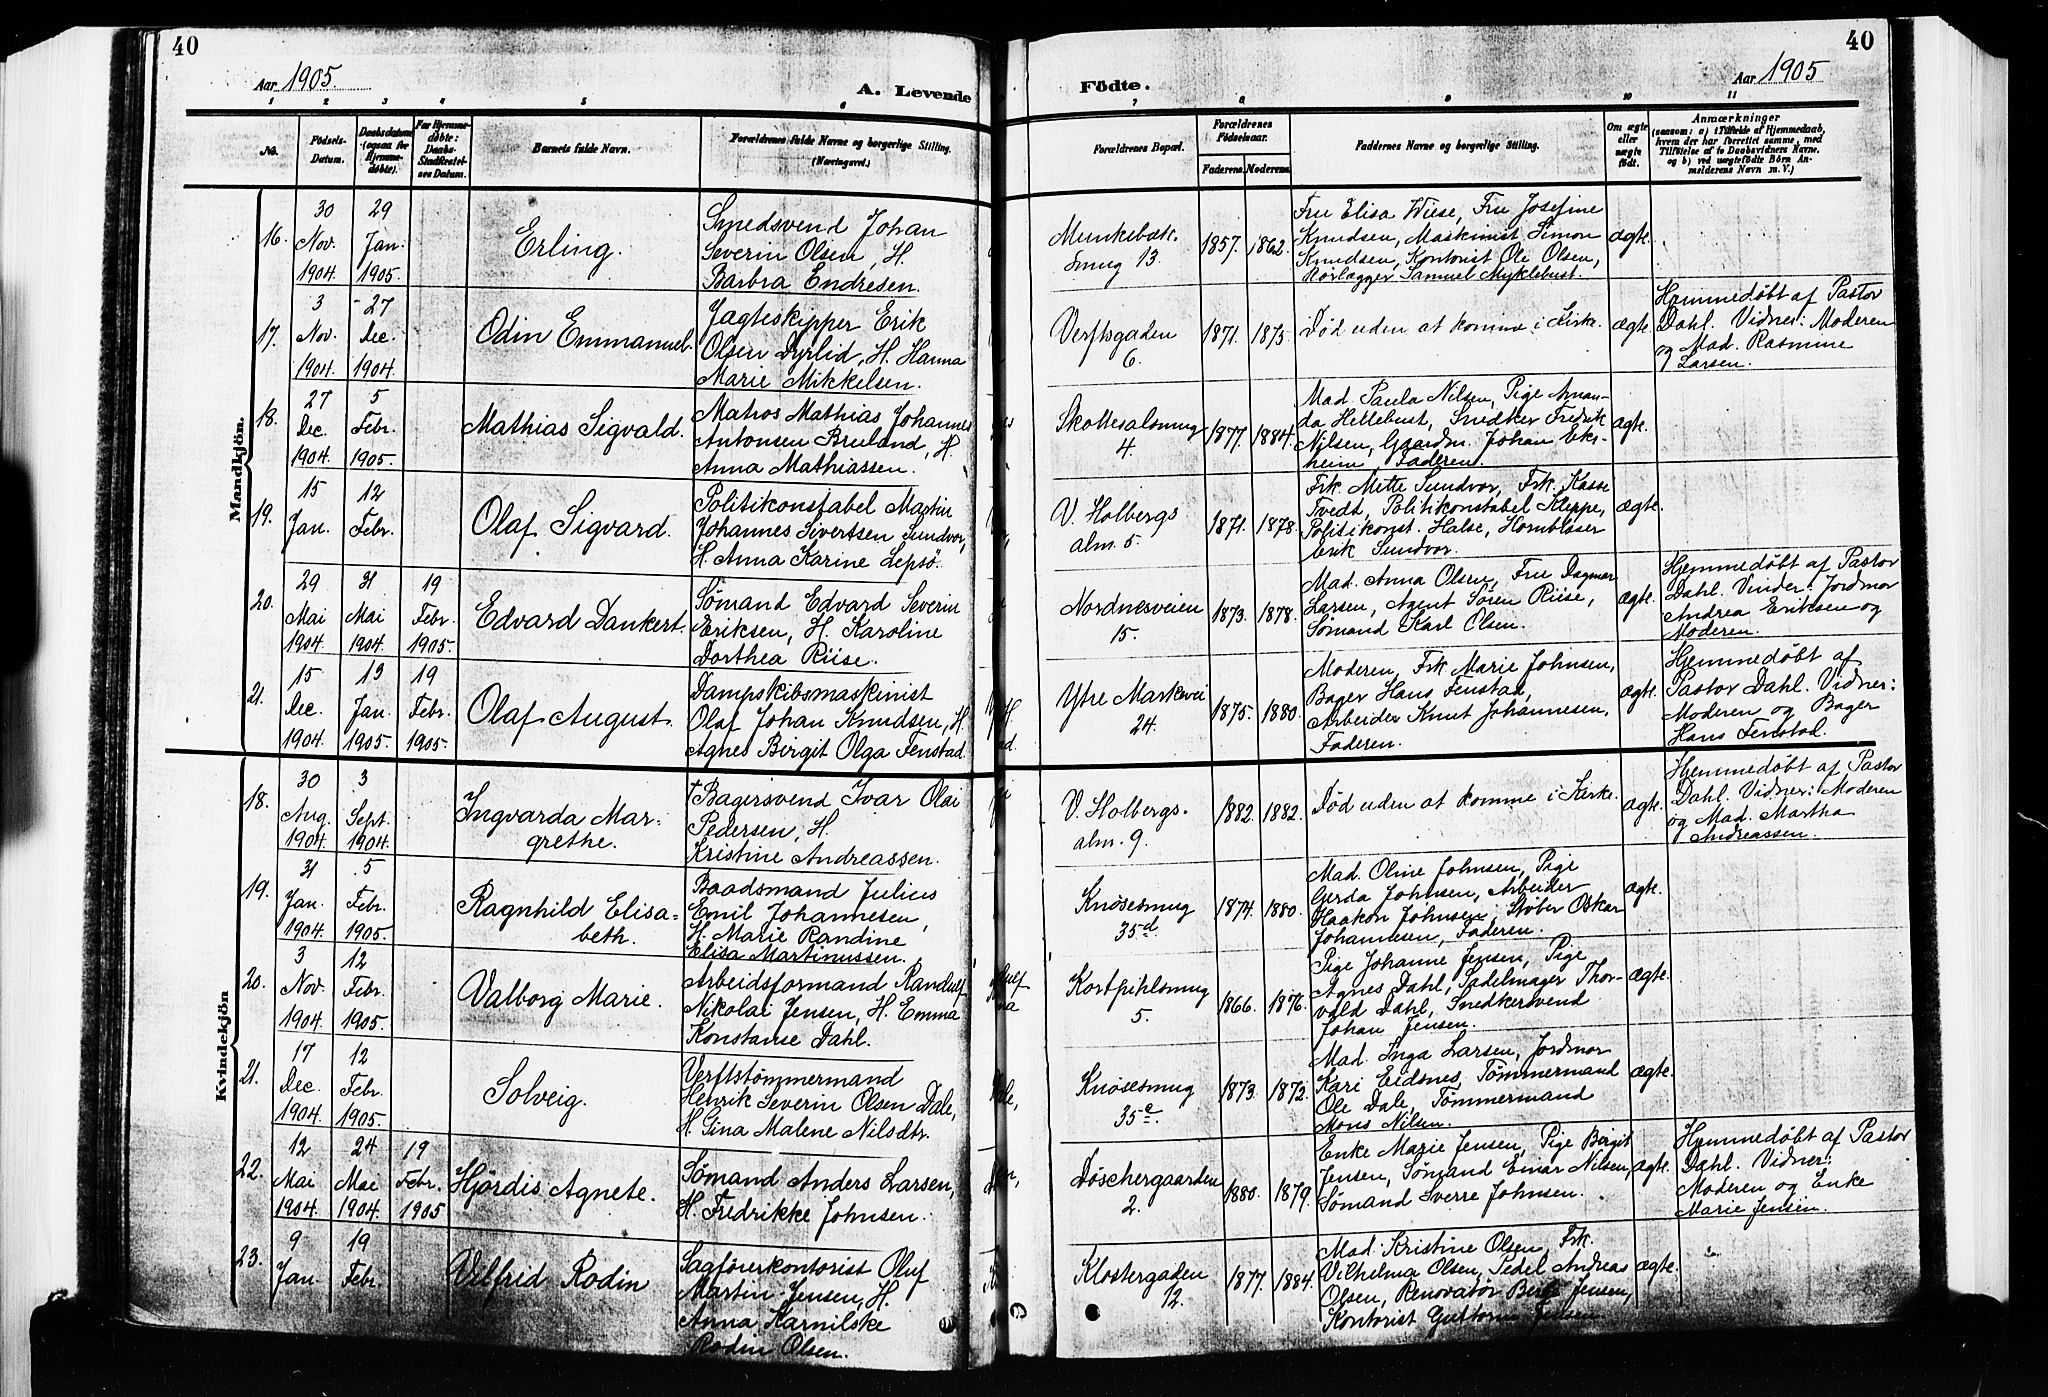 40
Aar 1905.
A. Levende
1 2 3 4 5 6
No.
Födsels-
Datum.
Daabsdatum
(ogsaa for
Hjemme-
døbte).
For Hjemme-
døbte:
Daabs-
Stadfæstel-
ses Datum.
Barnets fulde Navn.
Forældrenes fulde Navne og borgerlige Stilling.
(Næringsvei.)
Mandkjön.
16.
30
Nov.
1904
29
Jan.
1905.
Erling.
Smedsvend Johan
Severin Olsen, H.
Barbra Endresen.
17.
3
Nov.
1904.
27
Dec.
1904.
Odin Emmanuel.
Jagteskipper Erik
Olsen Dyrlid, H. Hanna
Marie Mikkelsen.
18.
27
Dec.
1904.
5
Febr.
1905.
Mathias Sigvald.
Matros Mathias Johannes
Antonsen Bruland, H.
Anna Mathiassen.
19.
15
Jan.
12
Febr.
Olaf Sigvard.
Politikonstabel Martin
Johannes Sivertsen Sundvor,
H. Anna Karine Lepsö.
20.
29
Mai
1904.
31
Mai
1904.
19
Febr.
1905.
Edvard Dankert.
Sømand Edvard Severin
Eriksen, H. Karoline
Dorthea Riise.
21.
15
Dec.
1904.
13
Jan.
1905.
19
Febr.
1905.
Olaf August.
Dampskibsmaskinist
Olaf Johan Knudsen, H.
Agnes Birgit Olga Fenstad.
Kvindekjön
18.
30
Aug.
1904.
3
Sept.
1904.
Ingvarda Mar=
grethe.
† Bagersvend Ivar Olai
Pedersen, H.
Kristine Andreassen.
19.
31
Jan.
1904.
5
Febr.
1905.
Ragnhild Elisa=
beth.
Baadsmand Julius
Emil Johannesen,
H. Marie Randine
Elisa Martinussen.
20.
3
Nov.
1904
12
Febr.
1905.
Valborg Marie.
Arbeidsformand Randulf
Nikolai Jensen, H. Emma
Konstanse Dahl.
21.
17
Dec.
1904.
12
Febr.
1905.
Solveig.
Verftstømmermand
Henrik Severin Olsen Dale,
H. Gina Malene Nilsdtr.
22.
12
Mai
1904.
24
Mai
1904.
19
Febr.
1905
Hjördis Agnete.
Sømand Anders Larsen,
H. Fredrikke Johnsen.
23.
9
Jan.
19
Febr.
Vilfrid Rodin
Sagførerkontorist Oluf
Martin Jensen, H.
Anna Karnilske
Rodin Olsen.
40
Aar 1905
Födte.
7 8 9 10 11
Forældrenes Bopæl.
Forældrenes
Födselsaar.
Faderens. Moderens.
Faddernes Navne og borgerlige Stilling.
Om ægte
eller
uægte
født.
Anmærkninger
(saasom: a) i Tilfælde af Hjemmedaab,
hvem der har forrettet samme, med
Tilføielse af to Daabsvidners Navne.
og b) ved uægtefödte Börn An-
melderens Navn m. V.)
Munkebæk.
smug 13.
1857. 1862.
Fru Elisa Wiese, Fru Josefine
Knudsen, Maskinist Simon
Knudsen, Kontorist Ole Olsen,
Rørlægger Samuel Myklebust.
ægte.
Verftsgaden
6.
1871. 1875.
Død uden at komme i Kirke.
ægte.
Hjemmedøbt af Pastor
Dahl. Vidner: Moderen
og Mad. Rasmine
Larsen.
Skottesalsmug
4.
1877. 1884.
Mad. Paula Nilsen, Pige Aman-
da Hellebust, Snedker Fredrik
Nilsen, Gaardm. Johan Eks-
heim, Faderen.
ægte.
V. Holbergs
alm. 5.
1871. 1878
Frk. Mette Sundvor, Frk. Kasse
Tvedt, Politikonstabel Kleppe,
Politikonst. Halse, Hornblaser
Erik Sundvor.
ægte.
Nordnesveien
15.
1873. 1878.
Mad. Anna Olsen, Fru Dagmar
Larsen, Agent Søren Riise,
Sømand Karl Olsen.
ægte.
Hjemmedøbt af Pastor
Dahl. Vinder: Jordmor
Andrea Eriksen og
Moderen.
Ytre Markevei
24.
1875. 1880.
Moderen, Frk. Marie Johnsen,
Bager Hans Fenstad,
Arbeider Knut Johannesen,
Faderen.
ægte.
Hjemmedøbt af
Pastor Dahl. Vidner:
Moderen og Bager
Hans Fenstad.
V. Holbergs.
alm. 9.
1882. 1882.
Død uden at komme i Kirke.
ægte.
Hjemmedøbt af Pastor
Dahl. Vidner: Moderen
og Mad. Martha
Andreassen.
Knøsesmug
35d.
1874. 1880.
Mad. Oline Johnsen, Pige
Gerda Johnsen, Arbeider
Haakon Johnsen, Støber Oskar
Johannesen, Faderen.
ægte.
Kortpihlsmug
5.
1866. 1876.
Pige Johanne Jensen, Pige
Agnes Dahl, Sadelmager Thor-
vald Dahl, Snedkersvend
Johan Jensen.
ægte.
Knøsesmug
35e.
1873. 1872.
Mad. Inga Larsen, Jordmor
Kari Eidsnes, Tømmermand
Ole Dale, Tømmermand
Mons Nilsen.
ægte.
Døschergaarden
2.
1880. 1879.
Enke Marie Jensen, Pige Birgit
Jensen, Sømand Einar Nilsen,
Sømand Sverre Johnsen.
ægte.
Hjemmedøbt af Pastor
Dahl. Vidner:
Moderen og Enke
Marie Jensen.
Klostergaden
12.
1877. 1884.
Mad. Kristine Olsen, Frk.
Vilhelma Olsen, Pedel Andreas
Olsen, Renovatør Jensen,
Kontorist Guttorm Jensen.
ægte.